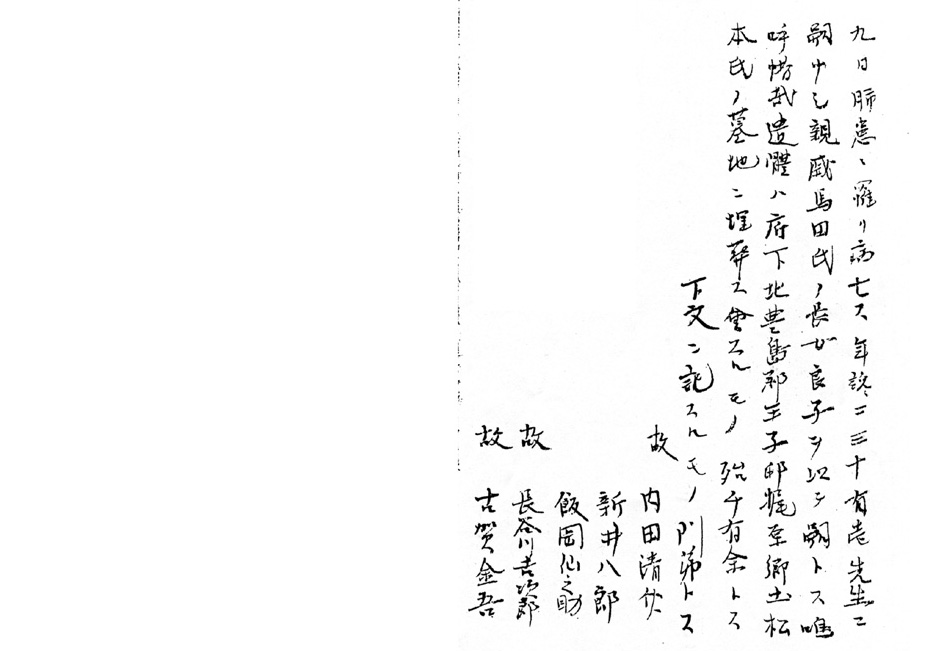 九日肺患ニ罹リ病亡ス年齢ニ三十有壱先生ニ
嗣ナシ親戚馬田氏ノ長女良子ヲ以テ嗣トス嗚
呼惜哉遺體ハ府下北豊島郡王子邨梶原郷士松
本氏ノ墓地ニ埋葬ス會スルモノ殆千有余トス
下文ニ記スルモノ門弟トス
故 内田清
新井八郎
飯岡仙之助
故 長谷川吉次郎
故 古賀金吾